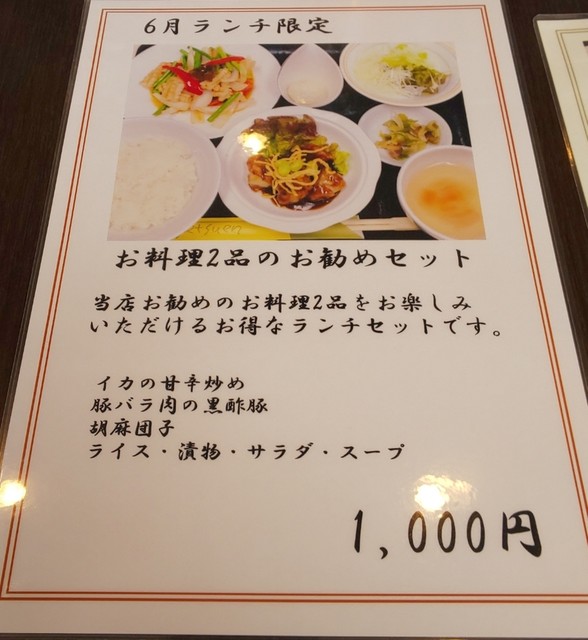 6月ランチ限定
お料理2品のお勧めセット
当店お勧めのお料理2品をお楽しみ
いただけるお得なランチセットです。
イカの甘辛炒め
豚バラ肉の黒酢豚
胡麻団子
ライス・漬物・サラダ・スープ
1,000円